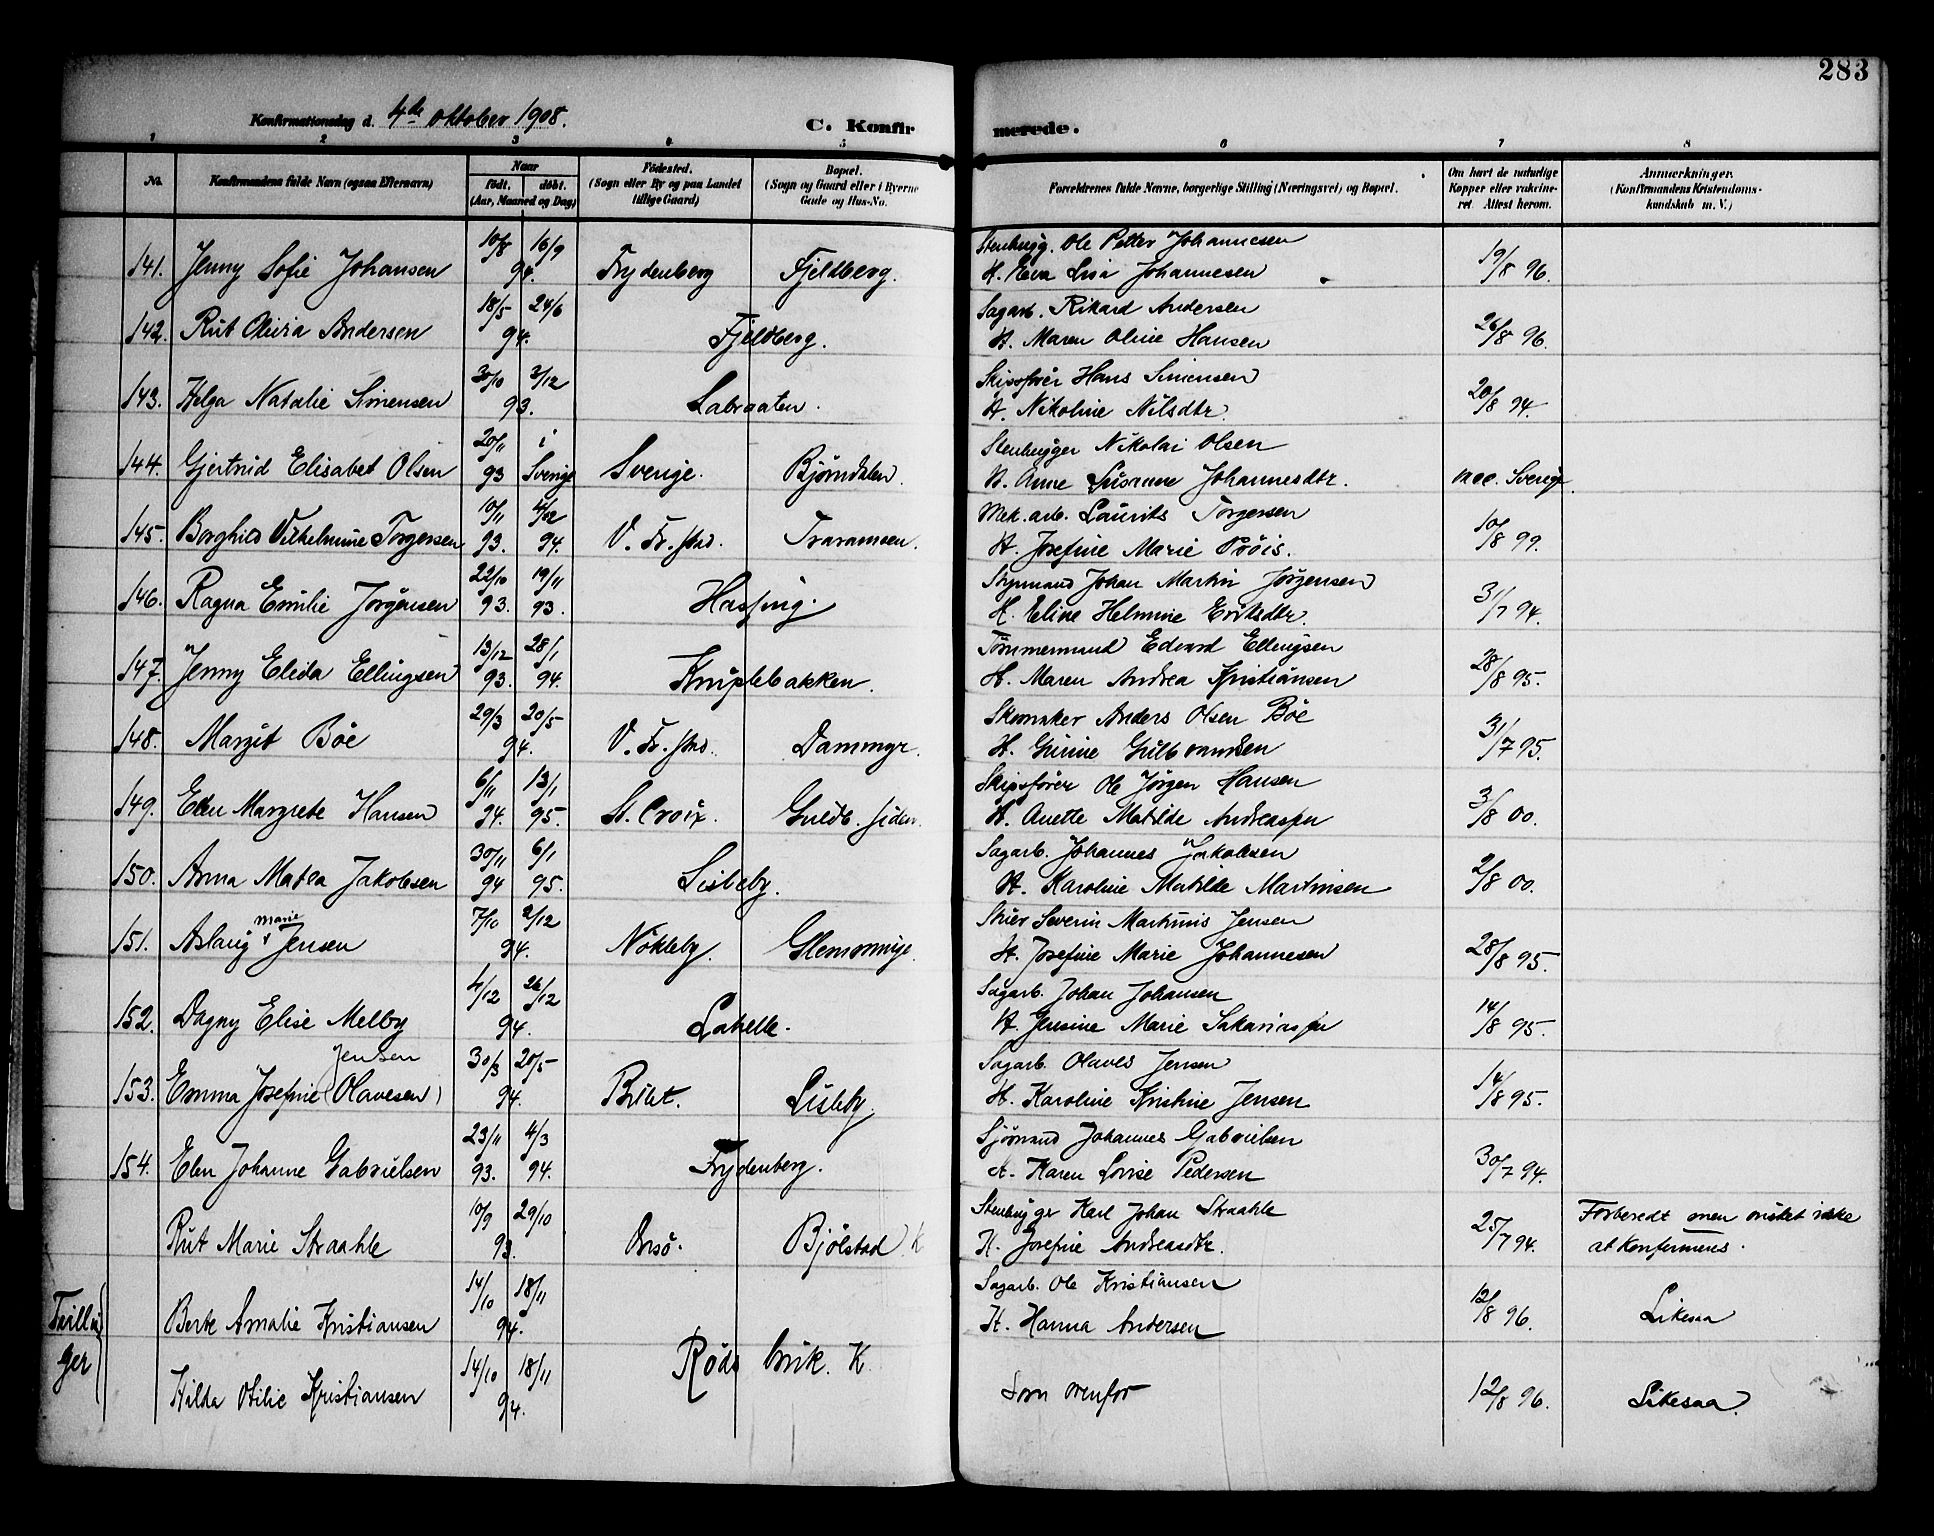 283
Konfirmationsdag d. 4de oktober 1908. C. Konfirmerede.
1 2 3 4 5 6 7 8
No. Konfirmandens fulde Navn (ogsaa Efternavn) Naar født. døbt. (Aar, Maaned og Dag) Fødested. (Sogn eller By og paa Landet tillige Gaard) Bopæl. (Sogn og Gaard eller i Byerne Gade og Hus-No. Forældrenes fulde Navne, borgerlige Stilling (Næringsvei) og Bopæl. Om havt de naturlige Kopper eller vakcineret. Attest herom. Anmærkninger. (Konfirmandens Kristendomskundskab m. V.)
141. Jenny Sofie Johansen 10/8 16/9 94. Frydenberg Fjeldberg. Stenhugg. Ole Petter Johannesen
H. Eva Lisa Johannesen 19/8 96.
142. Rut Olivia Andersen 18/5 24/6 94. Fjeldberg. Sagarb. Rikard Andersen
H. Maren Oline Hansen 26/8 96.
143. Helga Natalie Simensen 30/10 3/12 93. Labraaten. Skipsfører Hans Simensen
H. Nikoline Nilsdtr. 20/8 94.
144. Gjertrud Elisabet Olsen 20/11 93 i Sverige Sverige. Bjørndalen. Stenhugger Nikolai Olsen
H. Anne Susanne Johannesdtr. vacc. Sverige.
145. Borghild Vilhelmine Torgersen 10/11 93. 4/02 94. V. Fr.stad. Traramoen. Mek. arb. Laurits Torgersen
H. Josefine Marie Prøis. 10/8 99.
146. Ragna Emilie Jørgensen 22/10 93. 19/11 93. Hassing. Styrmand Johan Martin Jørgensen
H. Eline Helmine Eriksdtr. 31/7 94.
147. Jenny Elida Ellingsen 13/12 93. 28/1 94. Kniplebakken. Tømmermand Edvard Ellingsen
H. Maren Andrea Kristiansen 28/8 95.
148. Margit Bøe 29/3 20/5 94. V. Fr.stad. Dammyr. Skomaker Anders Olsen Bøe
H. Gurine Gulbrandsen 31/7 95.
149. Elen Margrete Hansen 6/11 94. 13/1 95. St. Croix. Guldb.siden. Skipsfører Ole Jørgen Hansen
H. Anette Matilde Andreassen 3/8 00.
150. Anna Matea Jakobsen 30/11 94 6/1 95. Lisleby. Sagarb. Johannes Jakobsen
H. Karoline Matilde Martinsen 2/8 00.
151. Aslaug Marie Jensen 7/10 2/12 94. Nøkleby. Glemminge. Stuer Severin Martinius Jensen
H. Josefine Marie Johannesen 28/8 95.
152. Dagny Elise Melby 4/12 26/12 94. Labelle. Sagarb. Johan Johansen
H. Jensine Marie Sakariassen 14/8 95.
Jensen
153. Emma Josefine (Olavesen) 30/3 20/5 94. Brilet. Lisleby. Sagarb. Olaves Jensen
H. Karoline Kristine Jensen 14/8 95.
154. Elen Johanne Gabrielsen 23/11 93. 4/3 94. Frydenberg. Sjømand Johannes Gabrielsen
H. Karen Lovise Pedersen 30/7 94.
Rut Marie Straahle 10/9 29/10 93. Onsø. Bjølstad K Stenhugger Karl Johan Straahle
H. Josefine Andreasdtr. 25/7 94. Forberedt men ønsket ikke
at konfirmeres.
Tvillinger Berte Amalie Kristiansen 14/10 18/11 94. Sagarb. Ole Kristiansen
H. Hanna Andersen 12/8 96. Likesaa
Røds brik. K
Hilda Otilie Kristiansen 14/10 18/11 94. Som ovenfor 12/8 96. Likesaa.